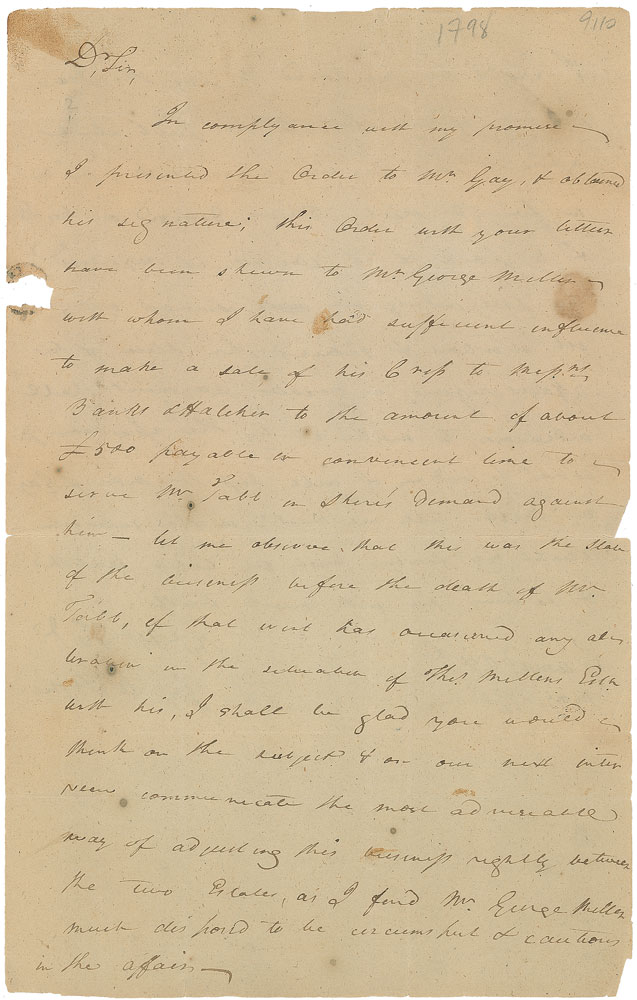 1798
9110
Dr. Sir,
In complyance with my promise
I presented the Order to Mr Gay, & obtained
his signature; this Order with your letter
have been shewn to Mr George Miller
with whom I have had sufficient influence
to make a sale of his Crop to Messrs
Banks & Hatcher to the amount of about
£500 payable in convenient time to
serve Mr Tabb in Shore's Demand against
him — let me observe that this was the state
of the business before the death of Mr.
Tabb, if that event has occasioned any alte
ration in the situation of Thos. Millers Este.
with his, I shall be glad you would
think on the subject & on our next inter
view communicate the most adviseable
way of adjusting this business rightly between
the two Estates, as I find Mr George Miller
much disposed to be circumspect & cautious
in the affair —